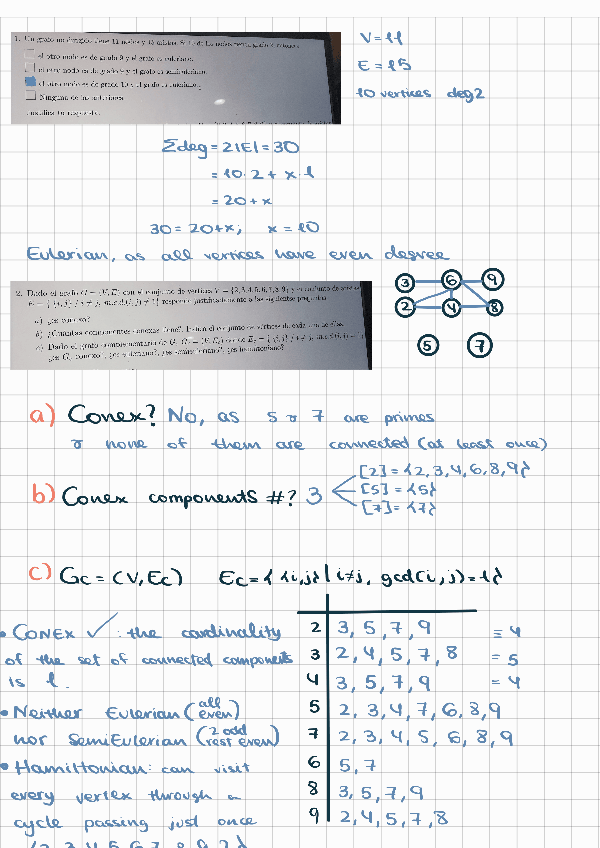 1. Un grafo no dirigido tiene 11 nodos y 15 aristas. Si 10 de los nodos tienen grado 2 entonces
el otro nodo es de grado 9 y el grafo es euleriano.
el otro nodo es de grado y el grafo es semieuleriano.
el otro nodo es de grado 10 y el grafo es euleriano.
Ninguna de las anteriores
tu respuesta.
V = 11
E = 15
10 vertices deg 2
Σdeg = 2|E| = 30
= 10·2 + x·1
= 20+x
30 = 20+x; x = 10
Eulerian, as all vertices have even degree
2. Dado el grafo G = (V, E) con el conjunto de vértices V = {2, 3, 4, 5, 6, 7, 8, 9} y el conjunto de aristas
E = { {i, j} / i ≠ j, mcd(i, j) ≠ 1 } responde justificadamente a las siguientes preguntas
a) ¿es conexo?
b) ¿Cuántas componentes conexas tiene? el conjunto de vértices de cada una de ellas.
c) Dado el grafo complementario de G, ¿es conexo?, ¿es euleriano?, ¿es semieuleriano?, ¿es hamiltoniano?
3 6 9
2 4 8
5 7
a) Conex? No, as 5 & 7 are primes
& none of them are connected (at least once)
b) Conex components #? 3
[2] = {2, 3, 4, 6, 8, 9}
[5] = {5}
[7] = {7}
c) Gc = (V, Ec) Ec = { {i,j} | i≠j, gcd(i,j) = 1}
• Conex ✓: the cardinality
of the set of connected components
is 1.
• Neither Eulerian (all even)
nor SemiEulerian (2 odd rest even)
• Hamiltonian: can visit
every vertex through a
cycle passing just once
2 3, 5, 7, 9 = 4
3 2, 4, 5, 7, 8 = 5
4 3, 5, 7, 9 = 4
5 2, 3, 4, 7, 6, 8, 9
7 2, 3, 4, 5, 6, 8, 9
6 5, 7
8 3, 5, 7, 9
9 2, 4, 5, 7, 8